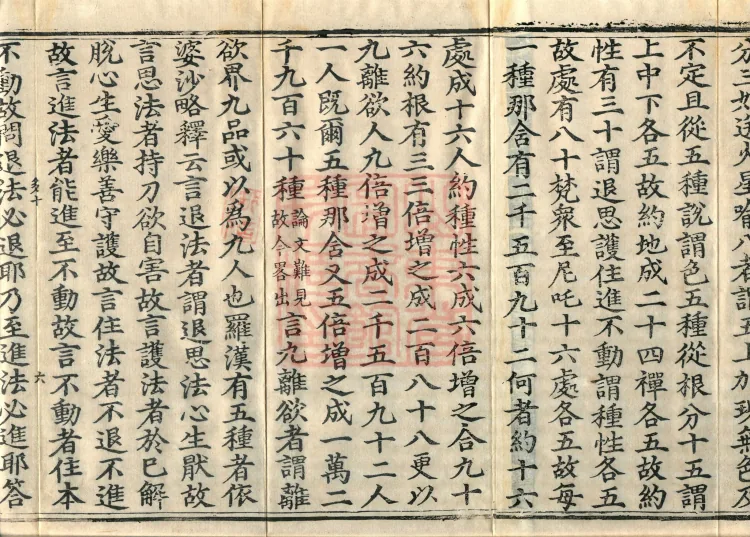 不定且從五種說謂色五種從根分十五謂
上中下各五故約地成二十四禪各五故約
性有三十謂退思護住進不動謂種性各五
故處有八十梵眾至尼吒十六處各五故每
一種那舍有二千五百九十二何者約十六
處成十六人約種性六成六倍增之合九十
六約根有三三倍增之成二百八十八更以
九離欲人九倍增之成二千五百九十二人
一人既爾五種那舍又五倍增之成一萬二
千九百六十種論文難見故今畧出言九離欲者謂離
欲界九品或以為九人也羅漢有五種者依
婆沙略釋云言退法者謂退思法心生猒故
言思法者持刀欲自害故言護法者於已解
脫心生愛樂善守護故言住法者不退不進
故言進法者能進至不動故言不動者住本
不動故問退法必退耶乃至進法必進耶答
六